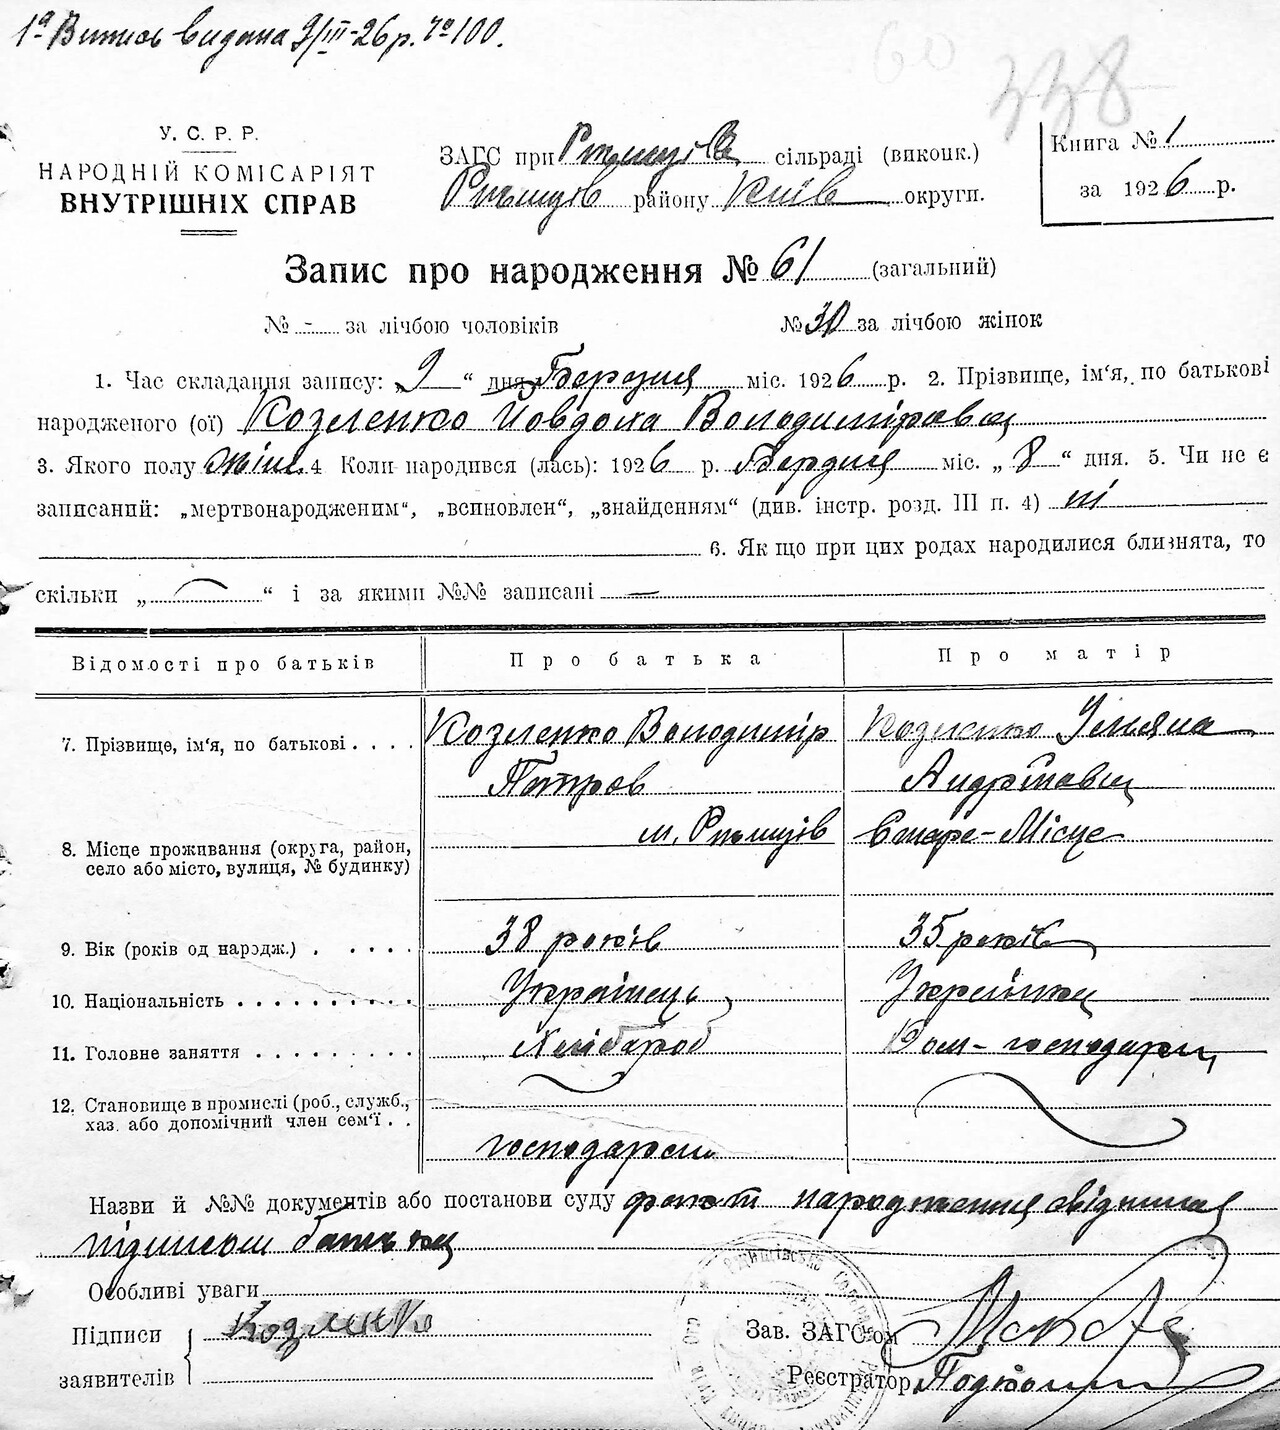 1ª Витись видана 9/III-26 р. № 100.
60
338
У. С. Р. Р.
НАРОДНІЙ КОМІСАРІЯТ
ВНУТРІШНІХ СПРАВ
ЗАГС при Ржищів сільраді (викопк.)
Ржищів району Київ округи.
Книга № 1
за 1926 р.
Запис про народження № 61 (загальний)
№ - за лічбою чоловіків № 30 за лічбою жінок
1. Час складання запису: „9“ дня Березня міс. 1926 р. 2. Прізвище, ім'я, по батькові
народженого (ої) Козленко Йовдоха Володимірівна
3. Якого полу жін. 4 Коли народився (лась): 1926 р. Березня міс. „8“ дня. 5. Чи не є
записаний: „мертвонародженим“, „всиновлен“, „знайденням“ (див. інстр. розд. III п. 4) ні
6. Якщо при цих родах народилися близнята, то
скільки „—“ і за якими №№ записані —
Відомості про батьків Про батька Про матір
7. Прізвище, ім'я, по батькові Козленко Володимір Козленко Уляна
Петров Андріївна
8. Місце проживання (округа, район, м. Ржищів Старе-Місце
село або місто, вулиця, № будинку)
9. Вік (років од народж.) 38 років 35 років
10. Національність Українець Українка
11. Головне заняття Хлібароб Дом-господарка
12. Становище в промислі (роб., служб.,
хаз. або допомічний член сем'ї
господарем
Назви й №№ документів або постанови суду факт народження свідчила
підписом батька
Особливі уваги
Підписи Козленко Зав. ЗАГС'ом
заявителів Реєстратор